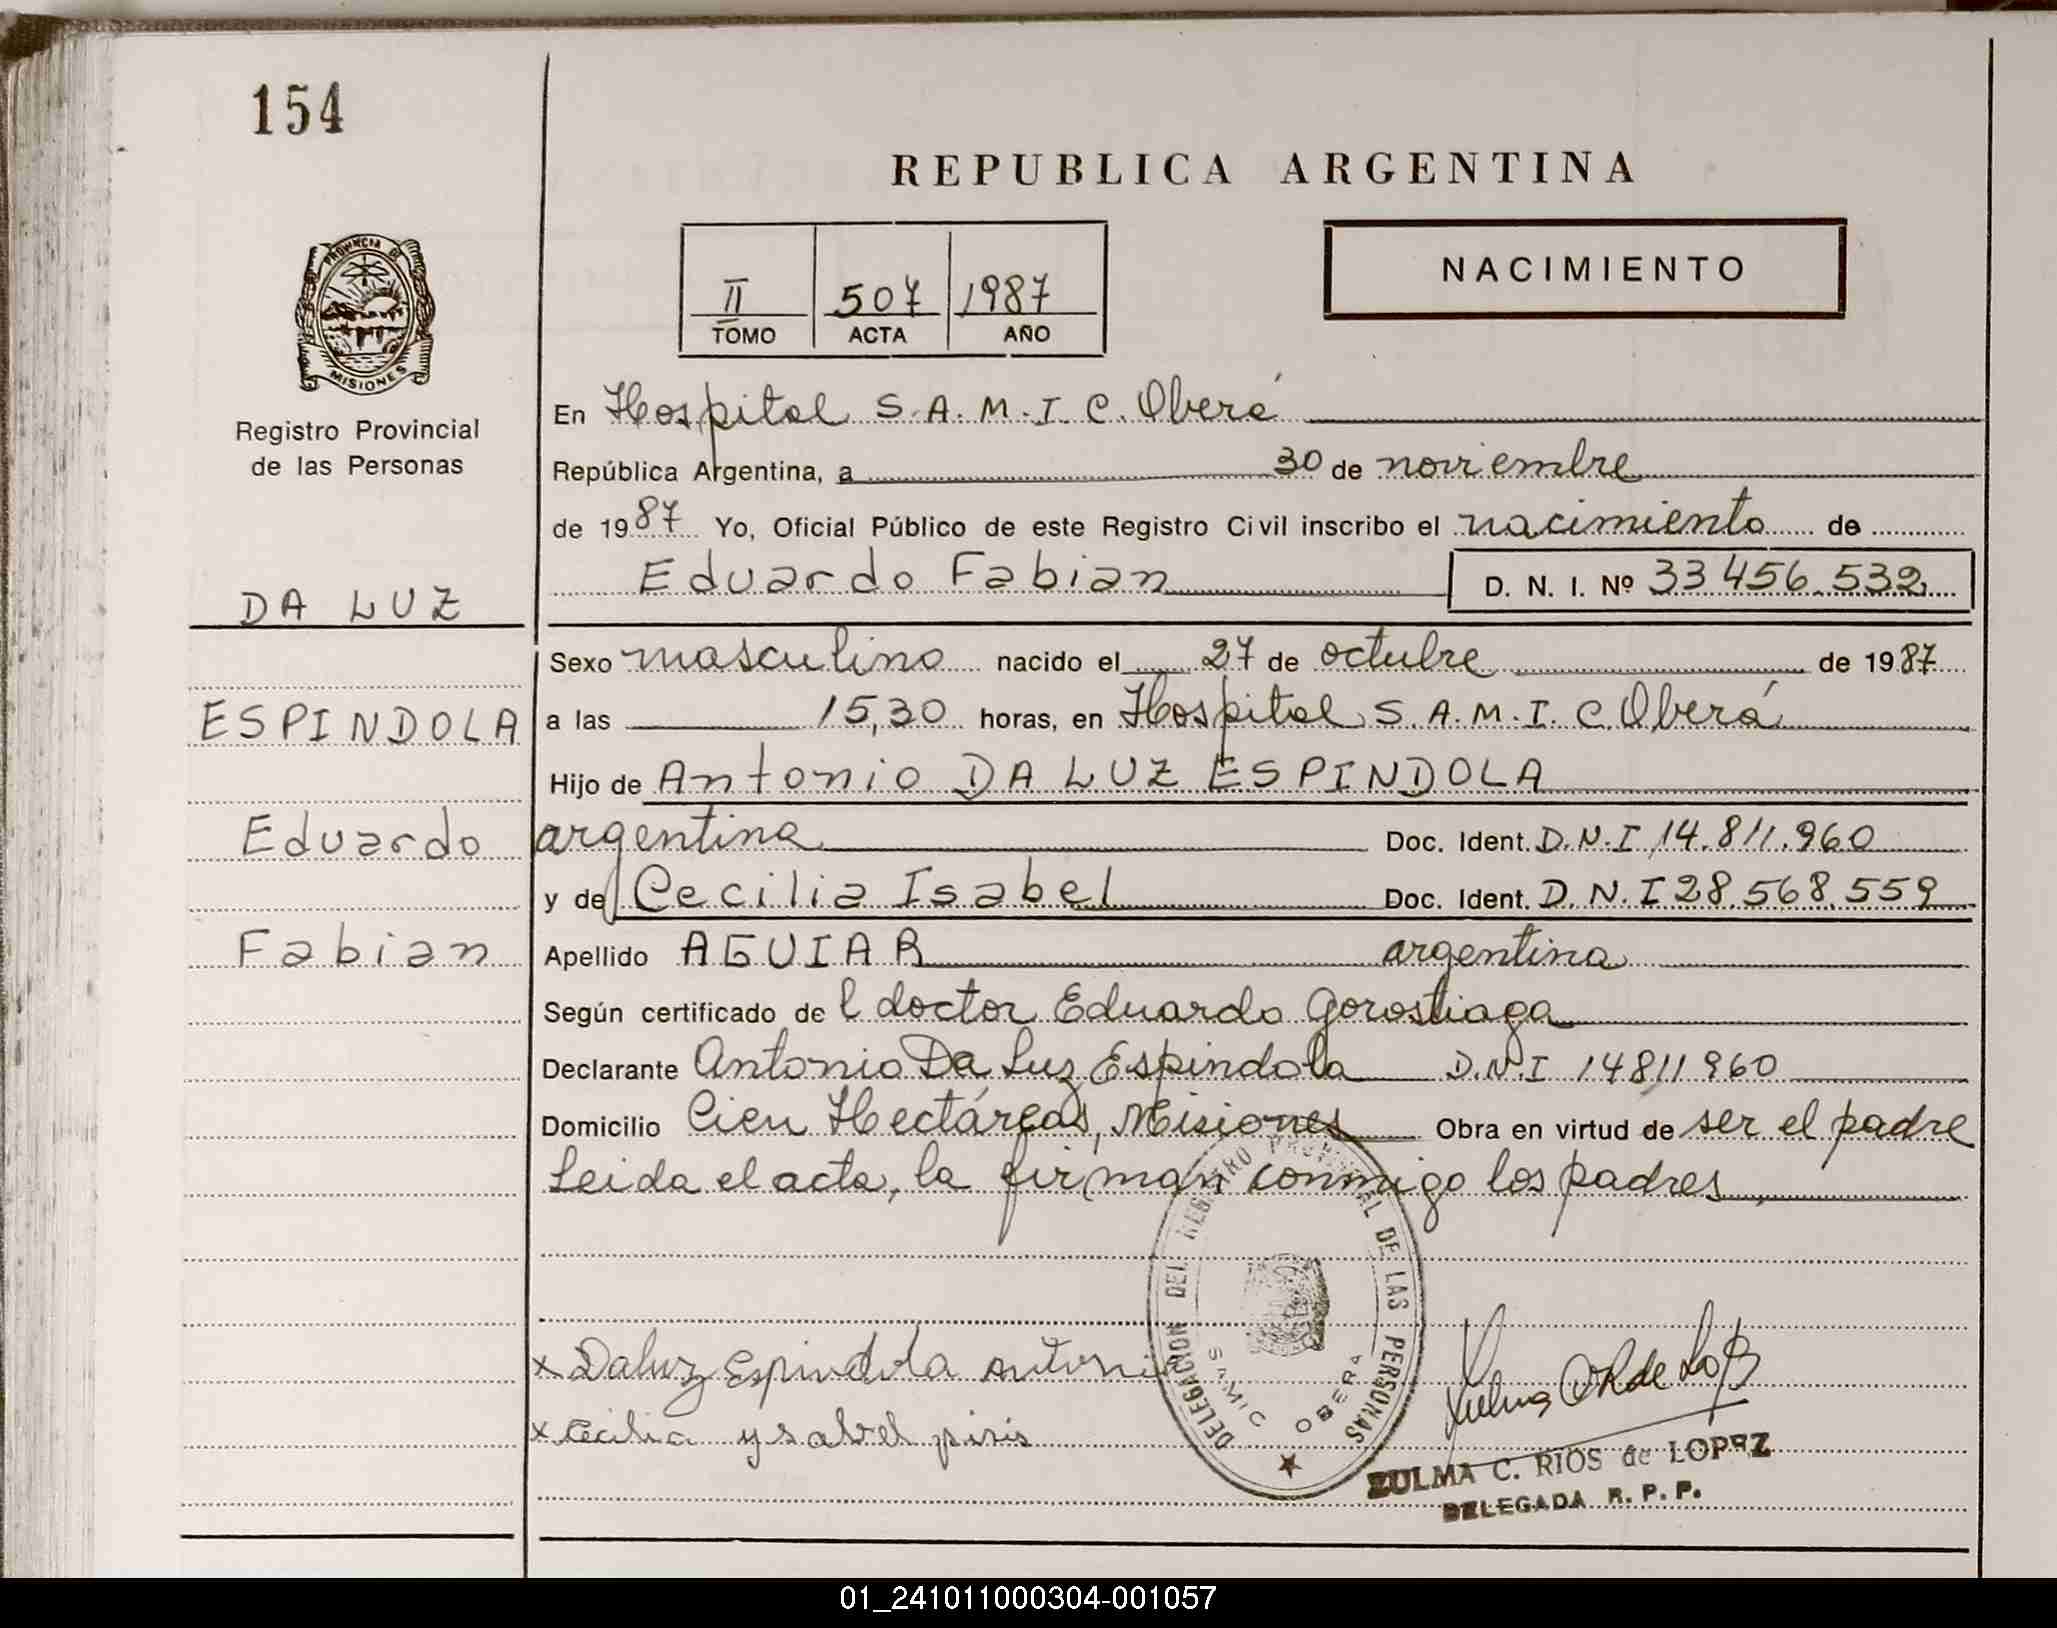 154
REPUBLICA ARGENTINA
PROVINCIA DE
MISIONES
Registro Provincial
de las Personas
II 507 1987
TOMO ACTA AÑO
NACIMIENTO
En Hospital S.A.M.I.C. Oberá
República Argentina, a 30 de noviembre
de 1987 Yo, Oficial Público de este Registro Civil inscribo el nacimiento de
Eduardo Fabian D. N. I. Nº 33.456.532
DA LUZ
ESPINDOLA
Eduardo
Fabian
Sexo masculino nacido el 27 de octubre de 1987
a las 15,30 horas, en Hospital S.A.M.I.C. Oberá
Hijo de Antonio DA LUZ ESPINDOLA
argentina Doc. Ident. D.N.I 14.811.960
y de Cecilia Isabel Doc. Ident. D.N.I 28.568.559
Apellido AGUIAR argentina
Según certificado de l doctor Eduardo Gorostiaga
Declarante Antonio Da Luz Espindola D.N.I 14811960
Domicilio Cien Hectáreas, Misiones Obra en virtud de ser el padre
Leida el acta, la firman conmigo los padres,
DELEGACION DEL REGISTRO PROVINCIAL DE LAS PERSONAS
SAMIC OBERA
x Daluz Espindola Antonio
x Cecilia ysabel piris
ZULMA C. RIOS de LOPEZ
DELEGADA R. P. P.
01_241011000304-001057